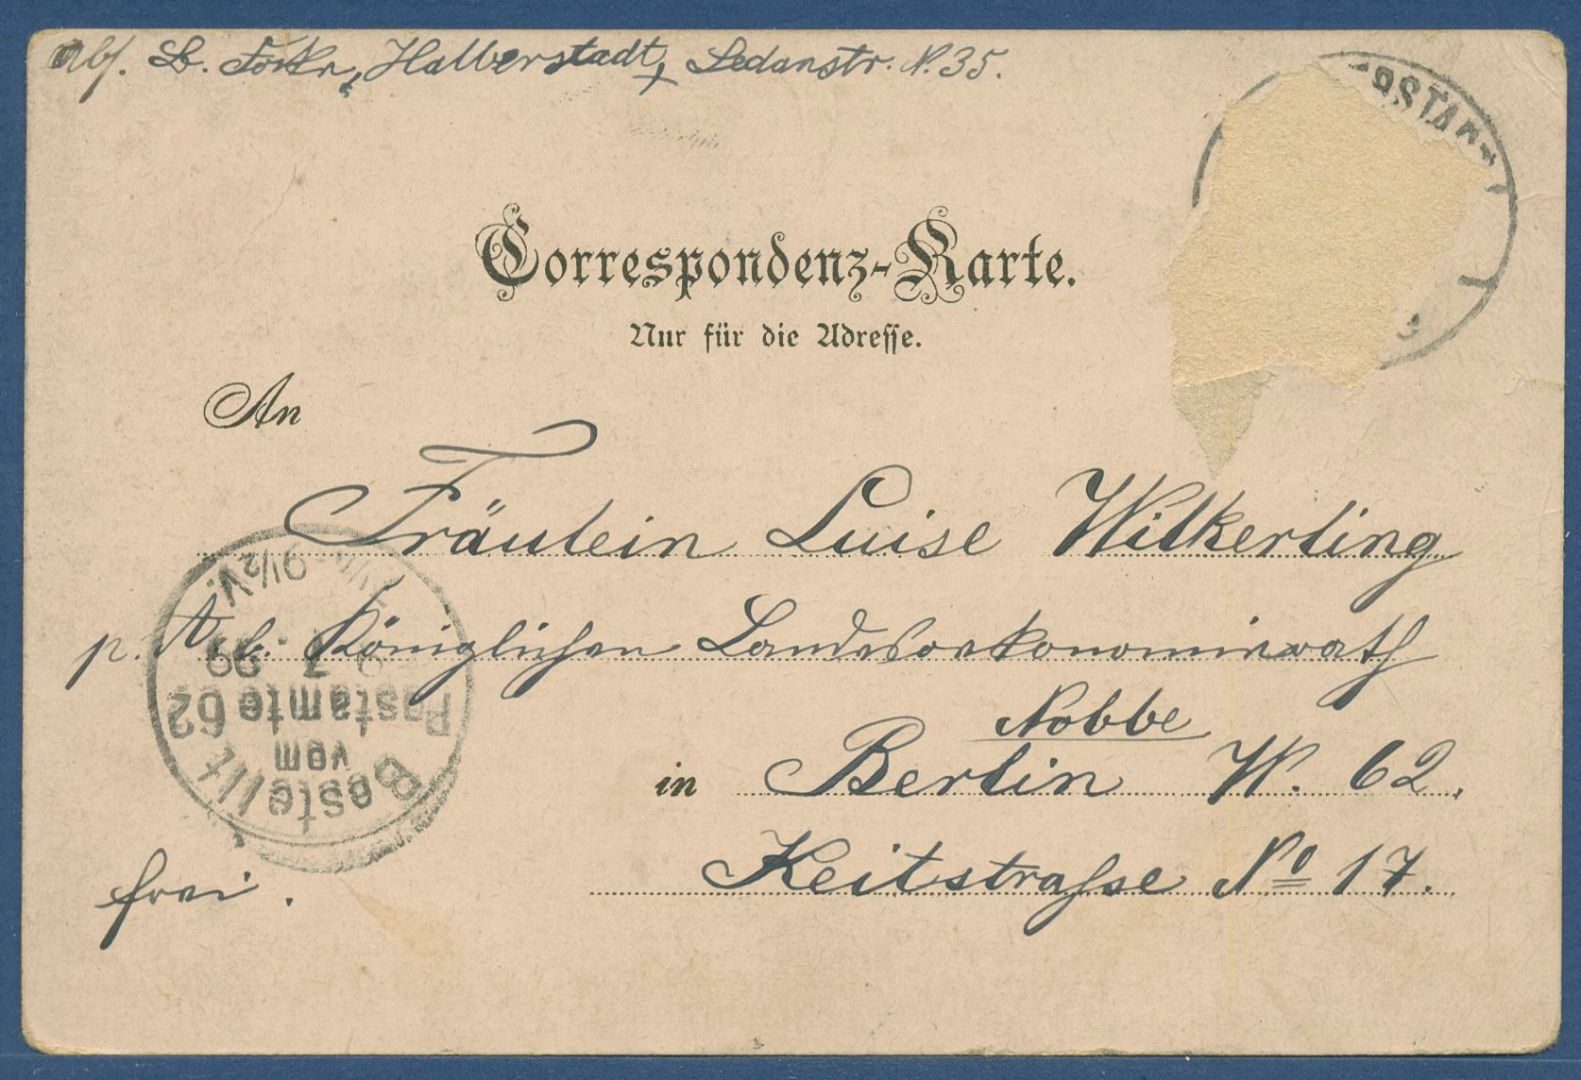 Abs. L. Halberstadt, Sedanstr. N. 35.
Correspondenz-Karte.
Nur für die Adresse.
An
Fräulein Luise Wilkerling
p. Adr. Königlichen Landesoekonomierath
Nobbe
in Berlin W. 62.
Keitstraße No 17.
frei.
Bestellt
vom
Postamte 62
7 99
9½V.
ERSTADT